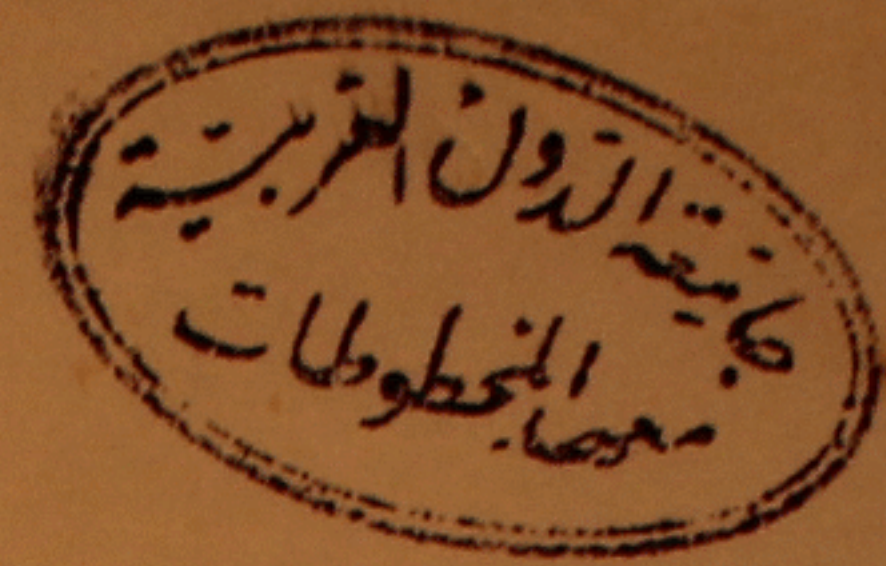 جامعة الدول العربية
معهد المخطوطات